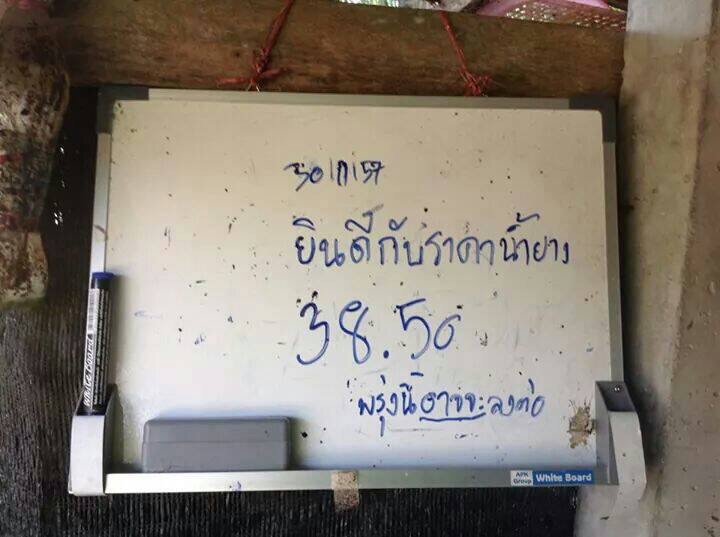 ยินดีกับราคาน้ำยาง
38.50
พรุ่งนี้อาจจะลงต่อ
APK Group White Board